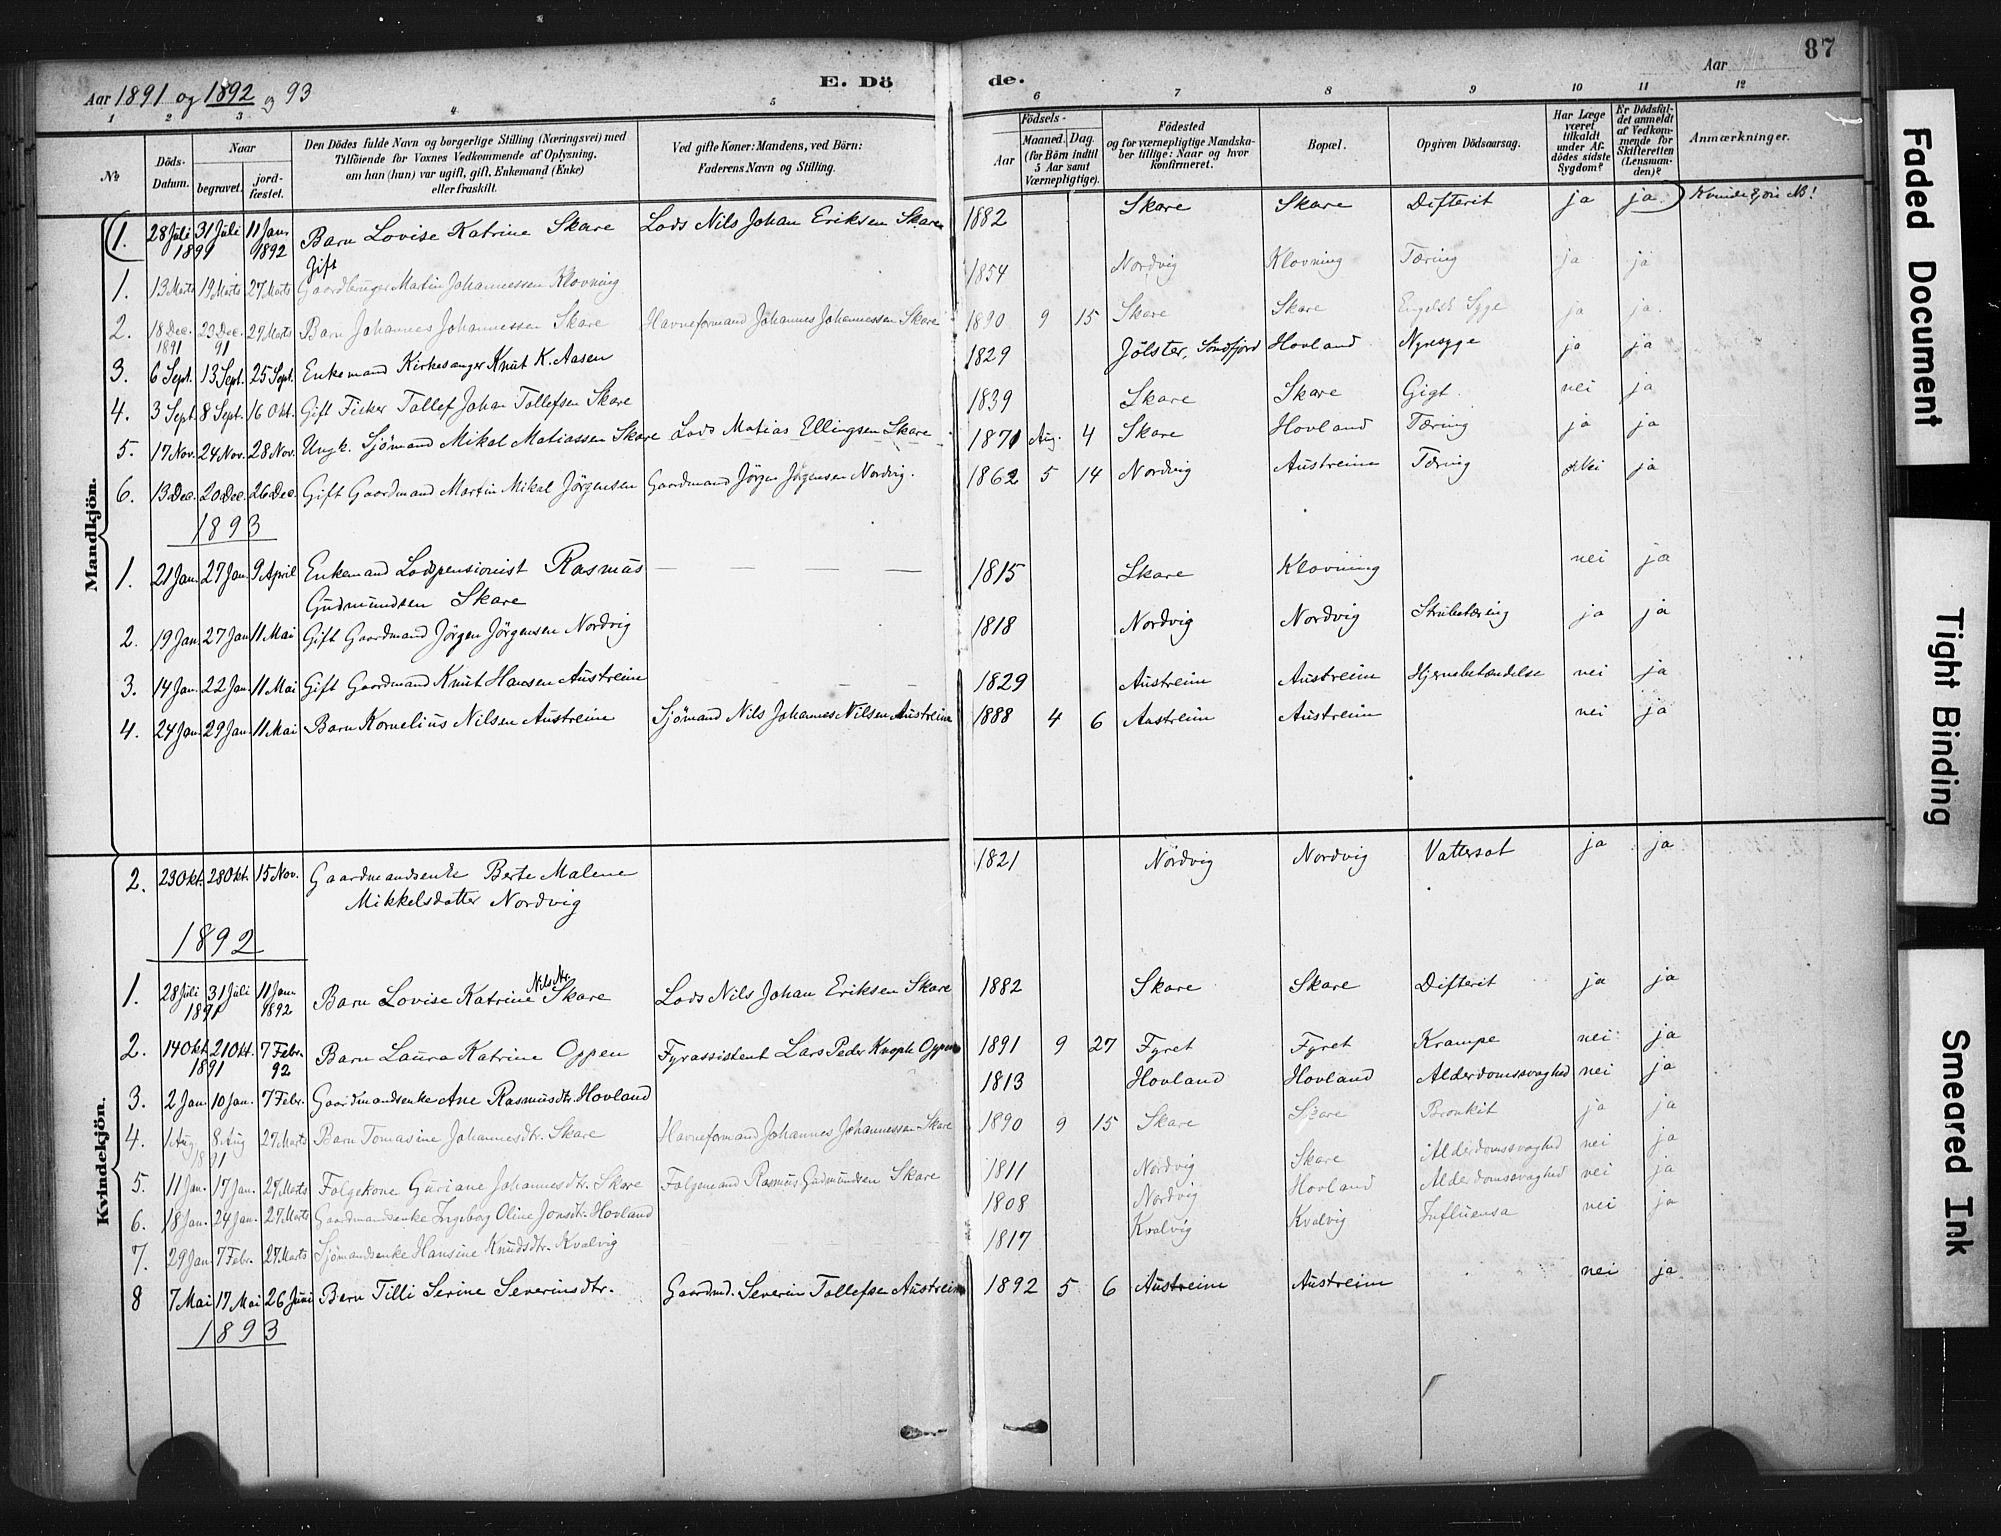 87
Aar 1891 og 1892 og 93
E. Döde.
Aar
1 2 3 4 5 6 7 8 9 10 11 12
№
Döds-Datum.
Naar
begravet.
jord-fæstet.
Den Dödes fulde Navn og borgerlige Stilling (Næringsvei) med
Tilföiende for Voxnes Vedkommende af Oplysning,
om han (hun) var ugift, gift, Enkemand (Enke)
eller fraskilt.
Ved gifte Koner: Mandens, ved Börn:
Faderens Navn og Stilling.
Födsels-
Aar
Maaned. Dag.
(for Börn indtil
5 Aar samt
Værnepligtige).
Födested
og for værnepligtige Mandska-
ber tillige: Naar og hvor
konfirmeret.
Bopæl.
Opgiven Dödsaarsag.
Har Læge
været
tilkaldt
under Af-
dödes sidste
Sygdom?
Er Dödsfal-
det anmeldt
af Vedkom-
mende for
Skifteretten
(Lensman-
den)?
Anmærkninger.
Mandkjön.
1. 28 Juli 31 Juli 1891 11 Jan. 1892 Barn Lovise Katrine Skare Lods Nils Johan Eriksen Skare 1882 Skare Skare Difterit ja ja Kvindekjön NB!
Gift
1. 13 Marts 19 Marts 27 Marts Gaardbruger Martin Johannessen Klovning 1854 Nordvig Klovning Tæring ja ja
2. 18 Dec. 1891 23 Dec. 91 27 Marts Barn Johannes Johannessen Skare Havneformand Johannes Johannessen Skare 1890 9 15 Skare Skare Engelsk Syge ja ja
3. 6 Sept. 13 Sept. 25 Sept. Enkemand Kirkesanger Knut K. Aasen 1829 Jölster, Söndfjord Hovland Nyresyge ja ja
4. 3 Sept. 8 Sept. 16 Okt. Gift Fisker Tollef Johan Tollefsen Skare 1839 Skare Skare Gigt. nei ja
5. 17 Nov. 24 Nov. 28 Nov. Ungk. Sjömand Mikal Matiassen Skare Lods Matias Ellingsen Skare 1871 Aug. 4 Skare Hovland Tæring ja ja
6. 13 Dec. 20 Dec. 26 Dec. Gift Gaardmand Martin Mikal Jörgensen Gaardmand Jörgen Jörgensen Nordvig. 1862 5 14 Nordvig Austreim Tæring Nei ja
1893
1. 21 Jan. 27 Jan. 9 April Enkemand Lodspensionist Rasmus 1815 Skare Klovning nei ja
Gudmundsen Skare
2. 19 Jan. 27 Jan. 11 Mai Gift Gaardmand Jörgen Jörgensen Nordvig 1818 Nordvig Nordvig Strubetæring ja ja
3. 14 Jan. 22 Jan. 11 Mai Gift Gaardmand Knut Hansen Austreim 1829 Austreim Austreim Hjernebetændelse nei ja
4. 24 Jan. 29 Jan. 11 Mai Barn Kornelius Nilsen Austreim Sjömand Nils Johannes Nilsen Austreim 1888 4 6 Austreim Austreim nei ja
Kvindekjön.
2. 23 Okt. 28 Okt. 15 Nov. Gaardmandsenke Berte Malene 1821 Nordvig Nordvig Vattersot ja ja
Mikkelsdatter Nordvig
1892
1. 28 Juli 31 Juli 1891 11 Jan. 1892 Barn Lovise Katrine Nilsdtr. Skare Lods Nils Johan Eriksen Skare 1882 Skare Skare Difterit ja ja
2. 14 Okt. 21 Okt. 1891 7 Febr. 92 Barn Laura Katrine Oppen Fyrassistent Lars Peder Knoph Oppen 1891 9 27 Fyret Fyret Krampe nei ja
3. 2 Jan. 10 Jan. 7 Febr. Gaardmandsenke Ane Rasmusdtr. Hovland 1813 Hovland Hovland Alderdomssvaghed nei ja
4. 1 Aug 8 Aug 1891 27 Marts Barn Tomasine Johannesdtr. Skare Havneformand Johannes Johannessen Skare 1890 9 15 Skare Skare Bronkit ja ja
5. 11 Jan. 17 Jan. 27 Marts Folgekone Guriane Johannesdtr. Skare Folgmand Rasmus Gudmundsen Skare 1811 Nordvig Skare Alderdomssvaghed nei ja
6. 18 Jan. 24 Jan. 27 Marts Gaardmandsenke Ingeborg Oline Jonsdtr. Hovland 1808 Nordvig Hovland Alderdomssvaghed nei ja
7. 29 Jan. 7 Febr. 27 Marts Sjömandsenke Hansine Knudsdtr. Kvalvig 1817 Kvalvig Kvalvig Influensa nei ja
8 7 Mai 17 Mai 26 Juni Barn Tilli Serine Severinsdtr. Gaardmd. Severin Tollefsen Austreim 1892 5 6 Austreim Austreim nei ja
1893
Faded Document
Tight Binding
Smeared Ink